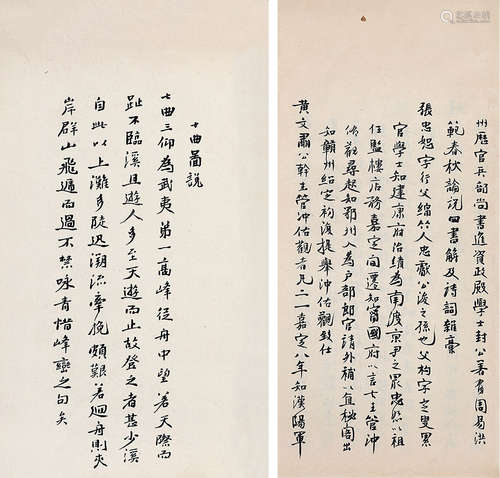 州歷官兵部尚書進資政殿學士封公著有周易洪
範春秋論說四書解及詩詞雜藁
張忠恕字行父綿竹人忠獻公浚之孫也父枃字定叟累
官學士知建康府治績為南渡京尹之最忠恕以祖
任監樓店務嘉定間遷知寧國府以言去主管沖
佑觀尋起知鄂州入為戶部郎官請外補以直秘閣出
知贛州紹定初復提舉沖佑觀致仕
黃文肅公幹主管沖佑觀者凡二一嘉定八年知漢陽軍
七曲圖說
七曲三仰為武夷第一高峰從舟中望若天際而
趾不臨溪且遊人多至天遊而止故登之者甚少溪
自此以上灘多陡迅溯流牽挽頗艱若迴舟則夾
岸群山飛遁而過不禁咏青惜峰巒之句矣